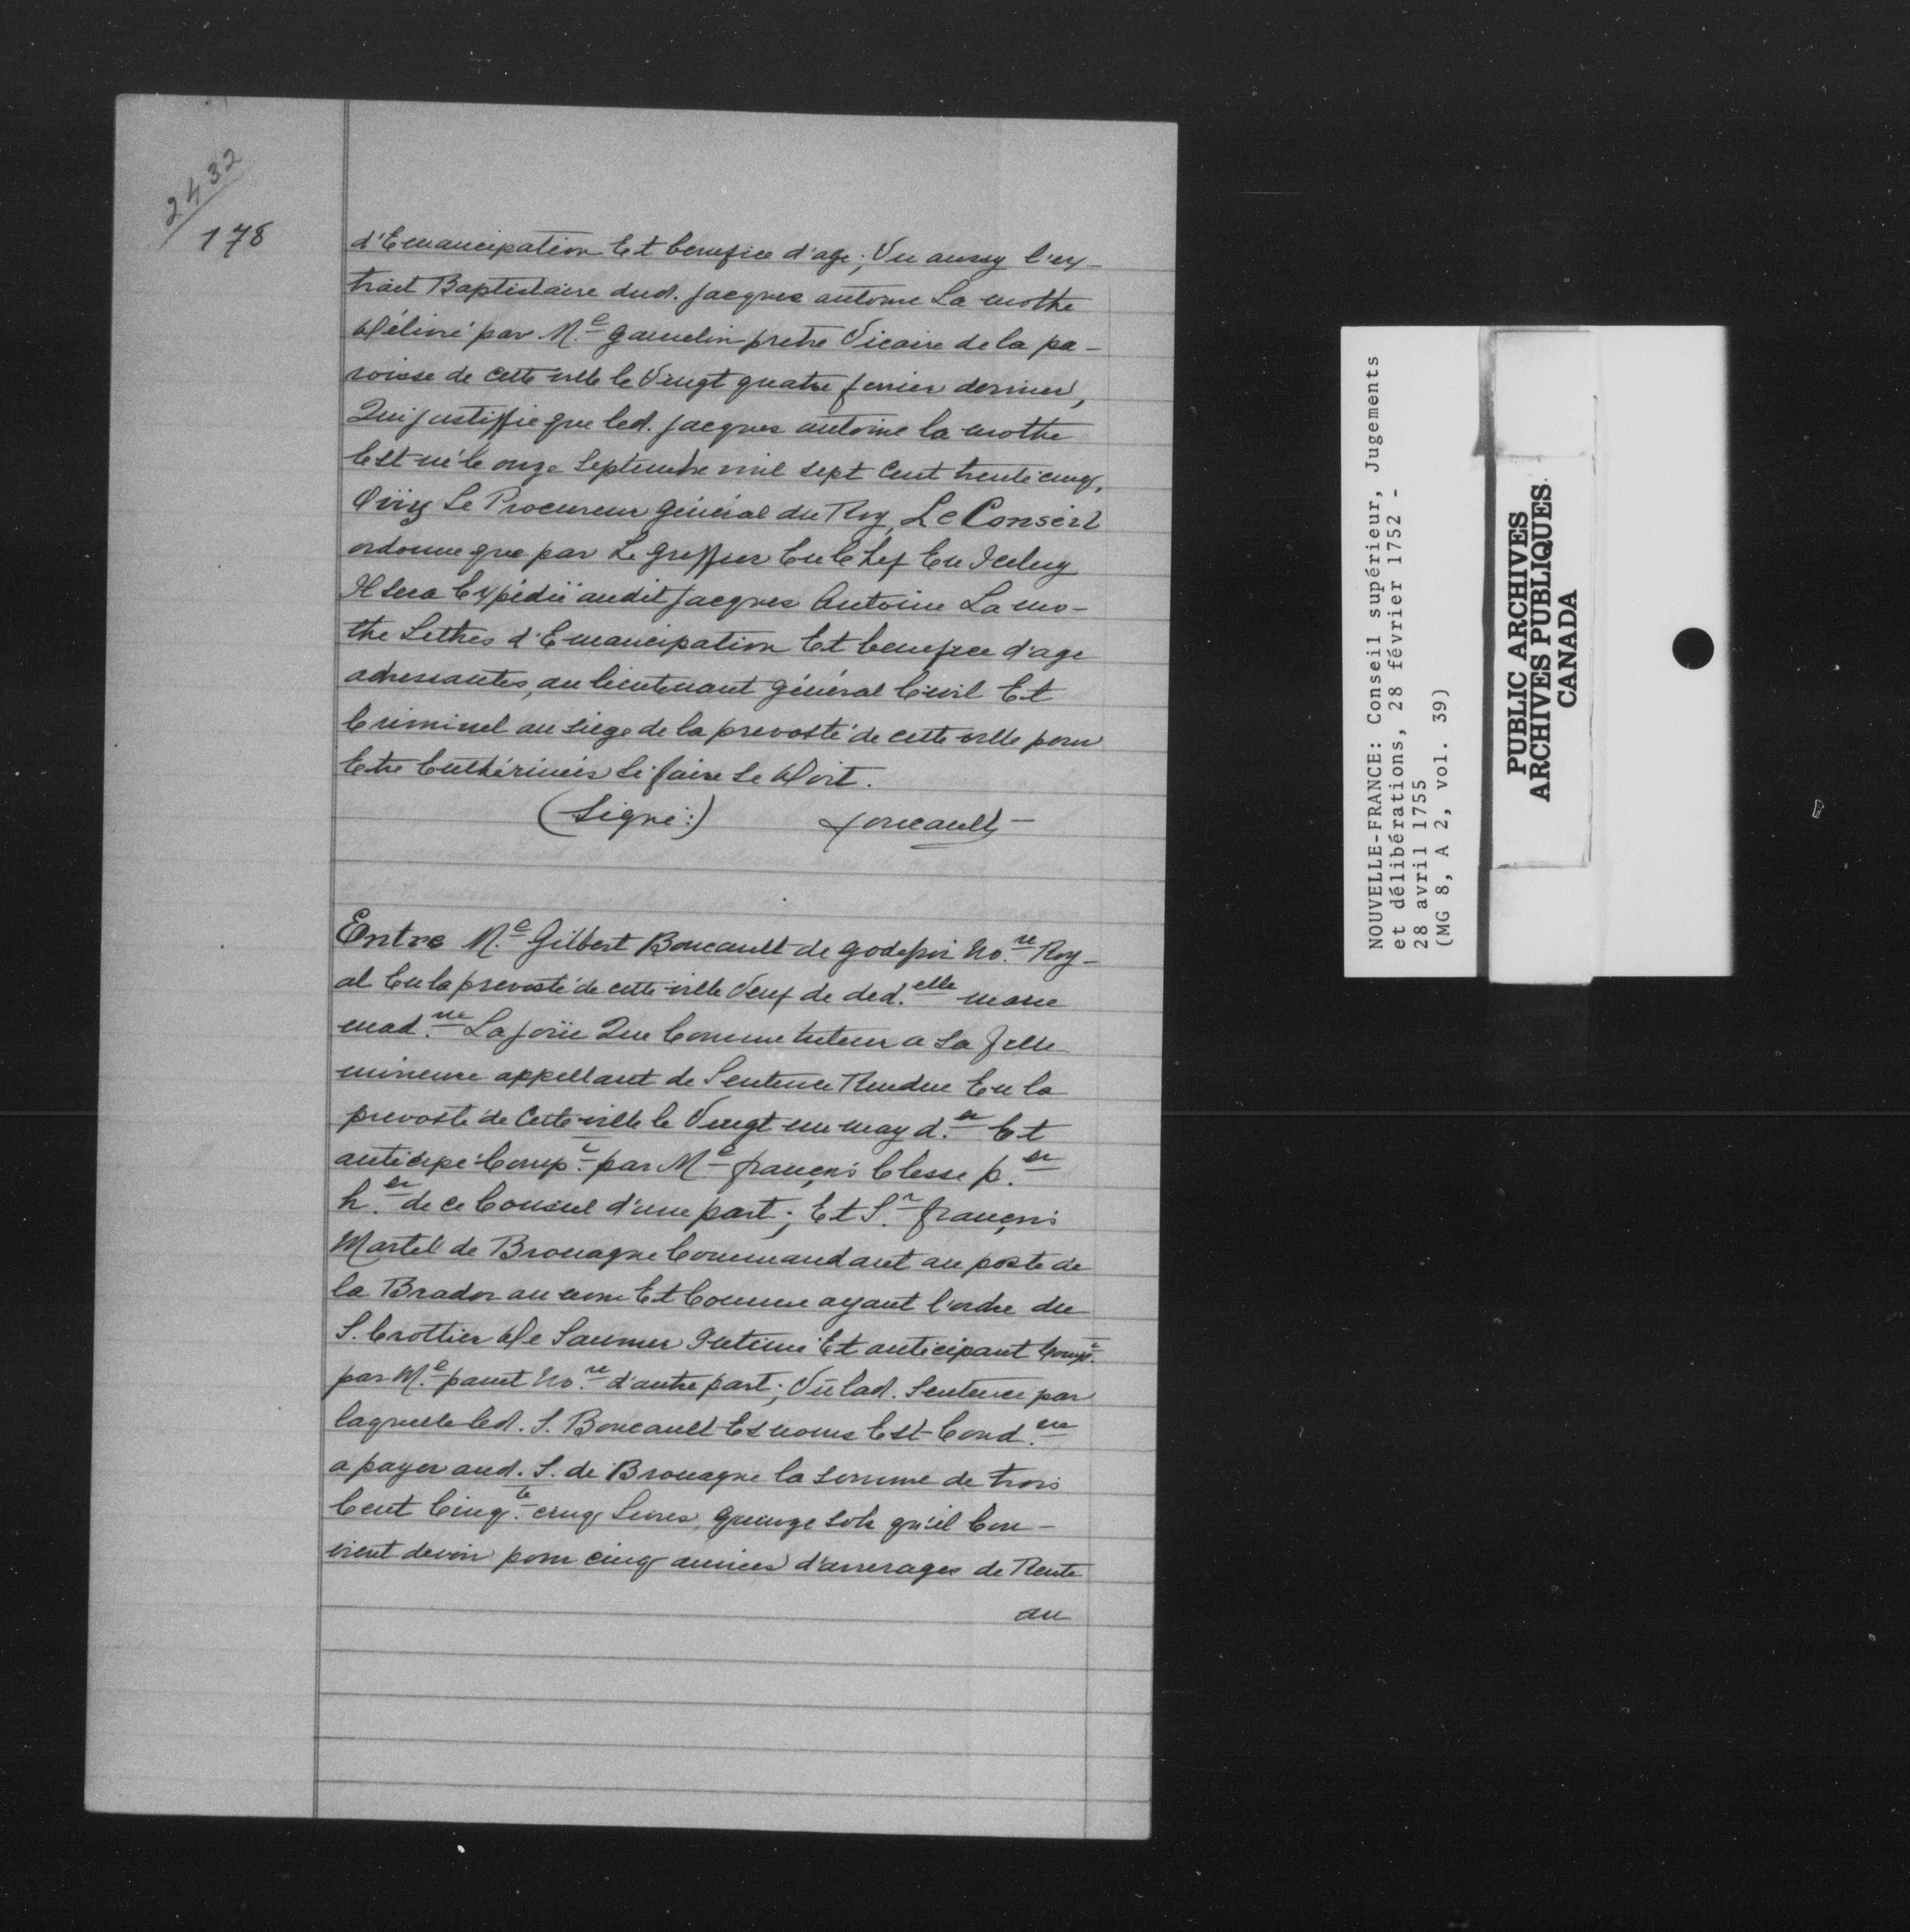 2432
178
d'Emancipation Et benefice d'age; Vu aussy l'ex-
trait Baptistaire dud. jacques antoine La mothe
délivré par M.e gamelin pretre Vicaire de la pa-
roisse de cette ville le Vingt quatre fevrier dernier,
Qui justiffie que led. jacques antoine la mothe
Est né le onze Septembre mil sept Cent trente cinq,
Oüy Le Procureur général du Roy, Le Conseil
ordonne que par Le Greffier En Chef En Iceluy
Il sera Expédié audit jacques Antoine La mo-
the Lettres d'Emancipation Et benefice d'age
adressantes, au lieutenant général Civil Et
Criminel au siege de la prevosté de cette ville pour
Etre Enthérinées Si faire Se Doit.
(Signé:) foucault
Entre M.e Gilbert Boucault de godefoi No.re Roy-
al En la prevosté de cette ville Veuf de ded.elle marie
mad.ne La joüe Que Comme tuteur a Sa fille
mineure appellant de Sentence Rendue En la
prevosté de Cette ville le Vingt un may d.er Et
anticipé Comp.t par M.e françois Clesse p.er
h.er de ce Conseil d'une part; Et S.r françois
Martel de Brouague Commandant au poste de
la Brador au nom Et Comme ayant l'ordre du
S. Crottier De Saumer Intimé Et anticipant Comp.t
par M.e panet No.re d'autre part; Vu lad. Sentence par
laquelle led. S. Boucault Es noms Est Cond.né
a payer aud. S. de Brouague la somme de trois
Cent Cinq.te cinq Livres quinze Sols qu'il Con-
vient devoir pour cinq années d'arrerages de Rente
au
NOUVELLE-FRANCE: Conseil supérieur, Jugements
et délibérations, 28 février 1752 -
28 avril 1755
(MG 8, A 2, vol. 39)
PUBLIC ARCHIVES
ARCHIVES PUBLIQUES
CANADA